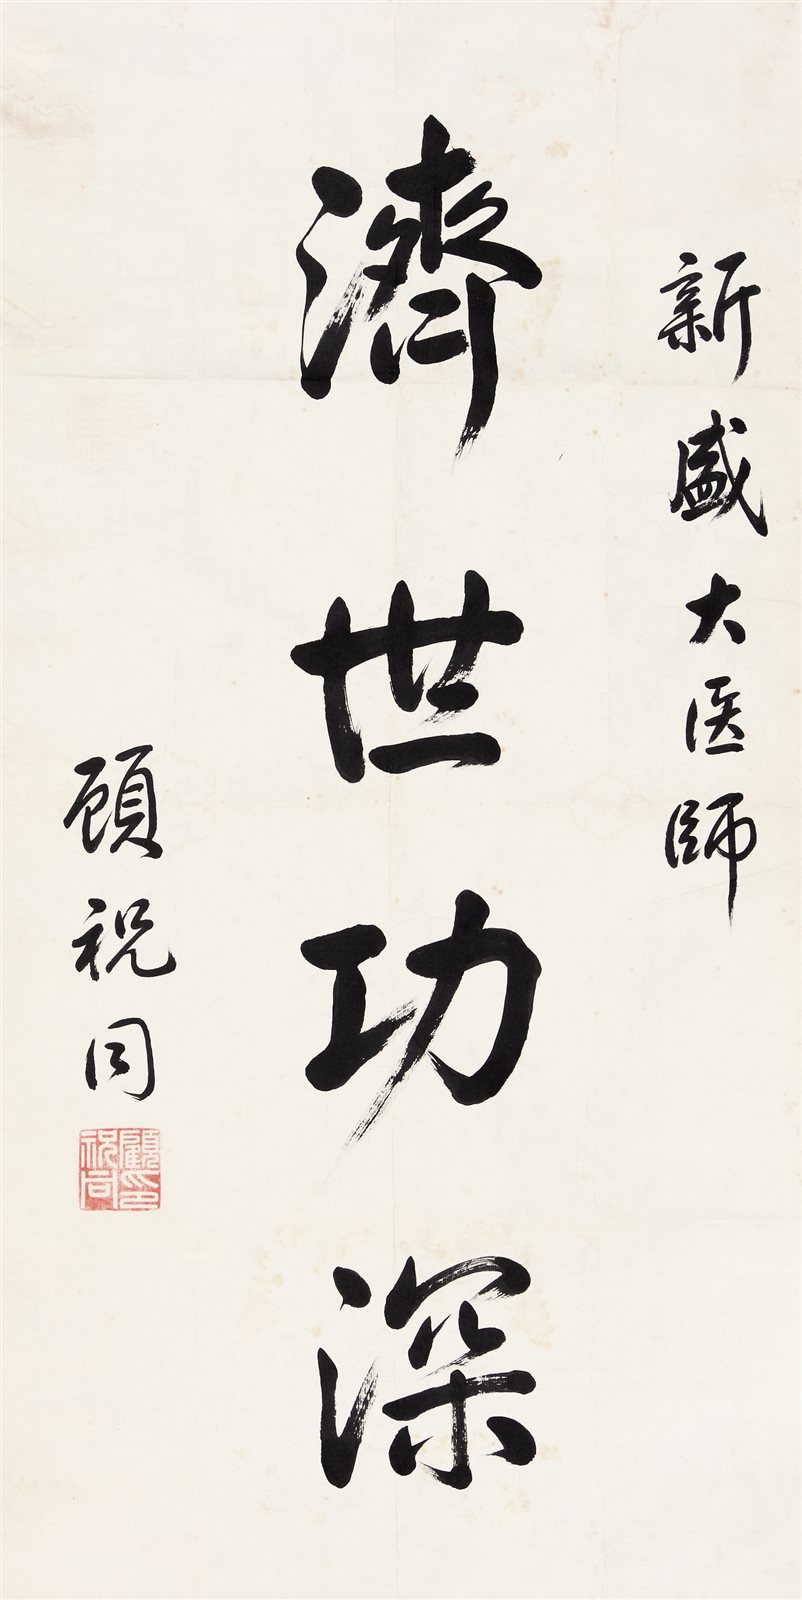 新盛大医師
濟世功深
顧祝同
顧祝同印